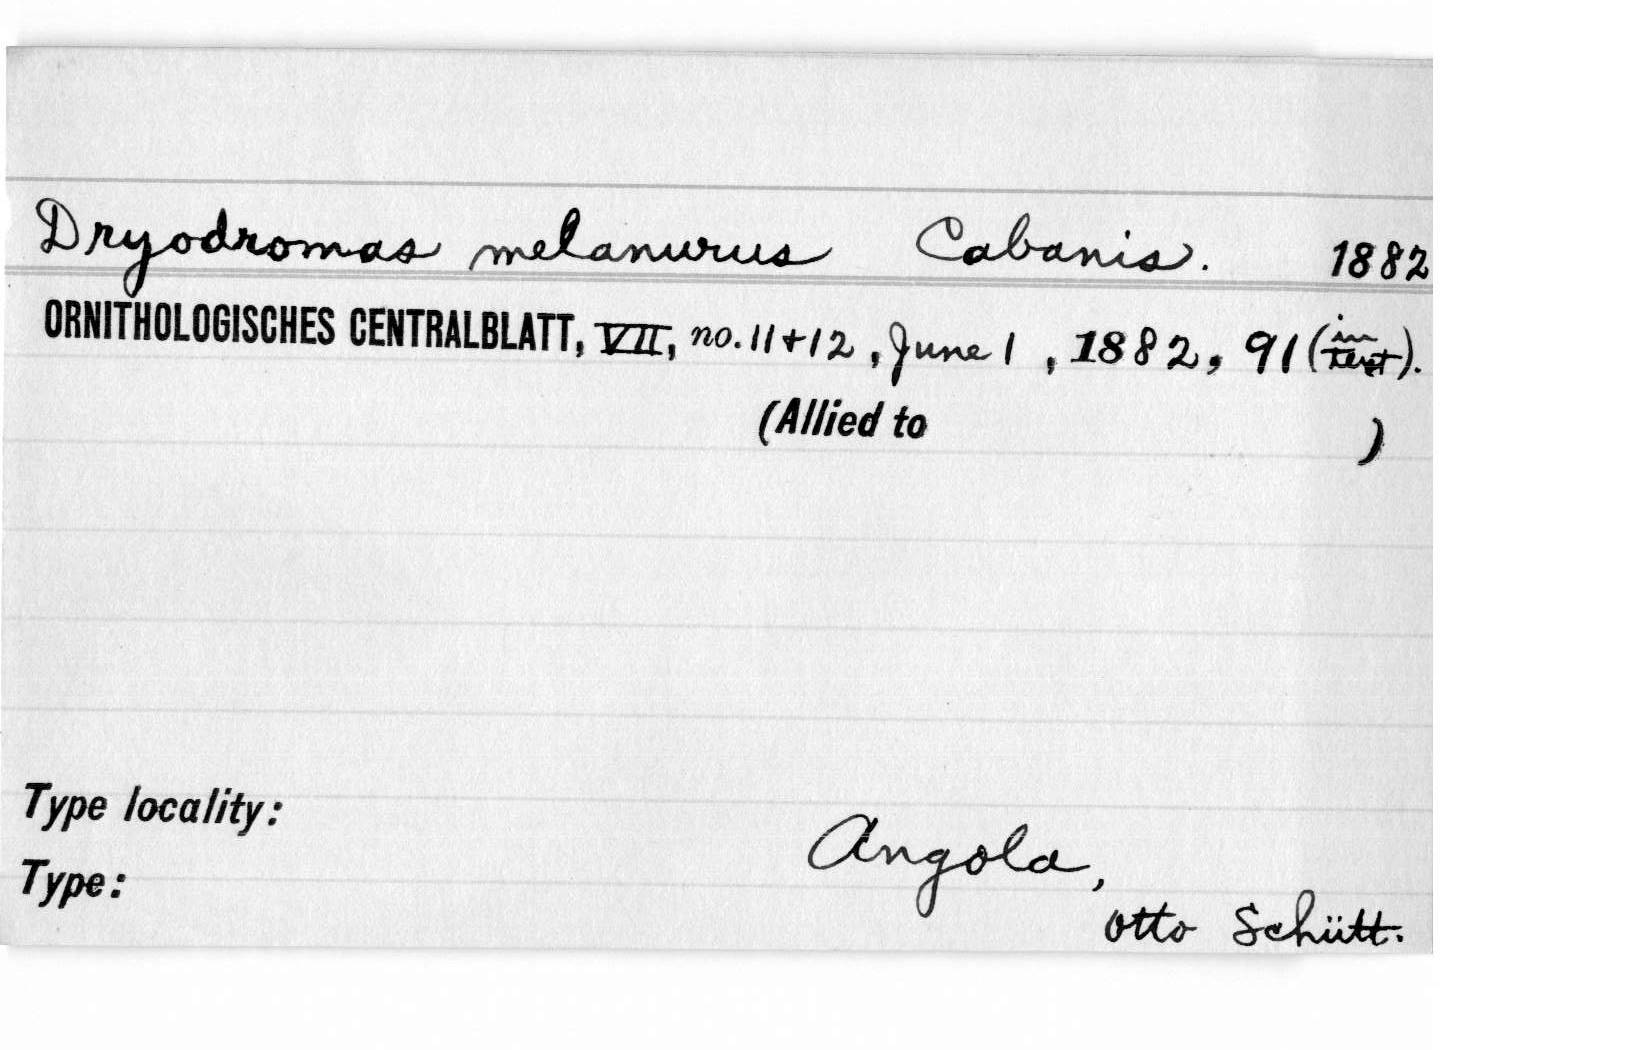 Dryodromas melanurus Cabanis. 1882
ORNITHOLOGISCHES CENTRALBLATT, VII, no. 11+12, June 1, 1882, 91 (in text).
(Allied to )
Type locality:
Angola,
Type:
Otto Schütt.